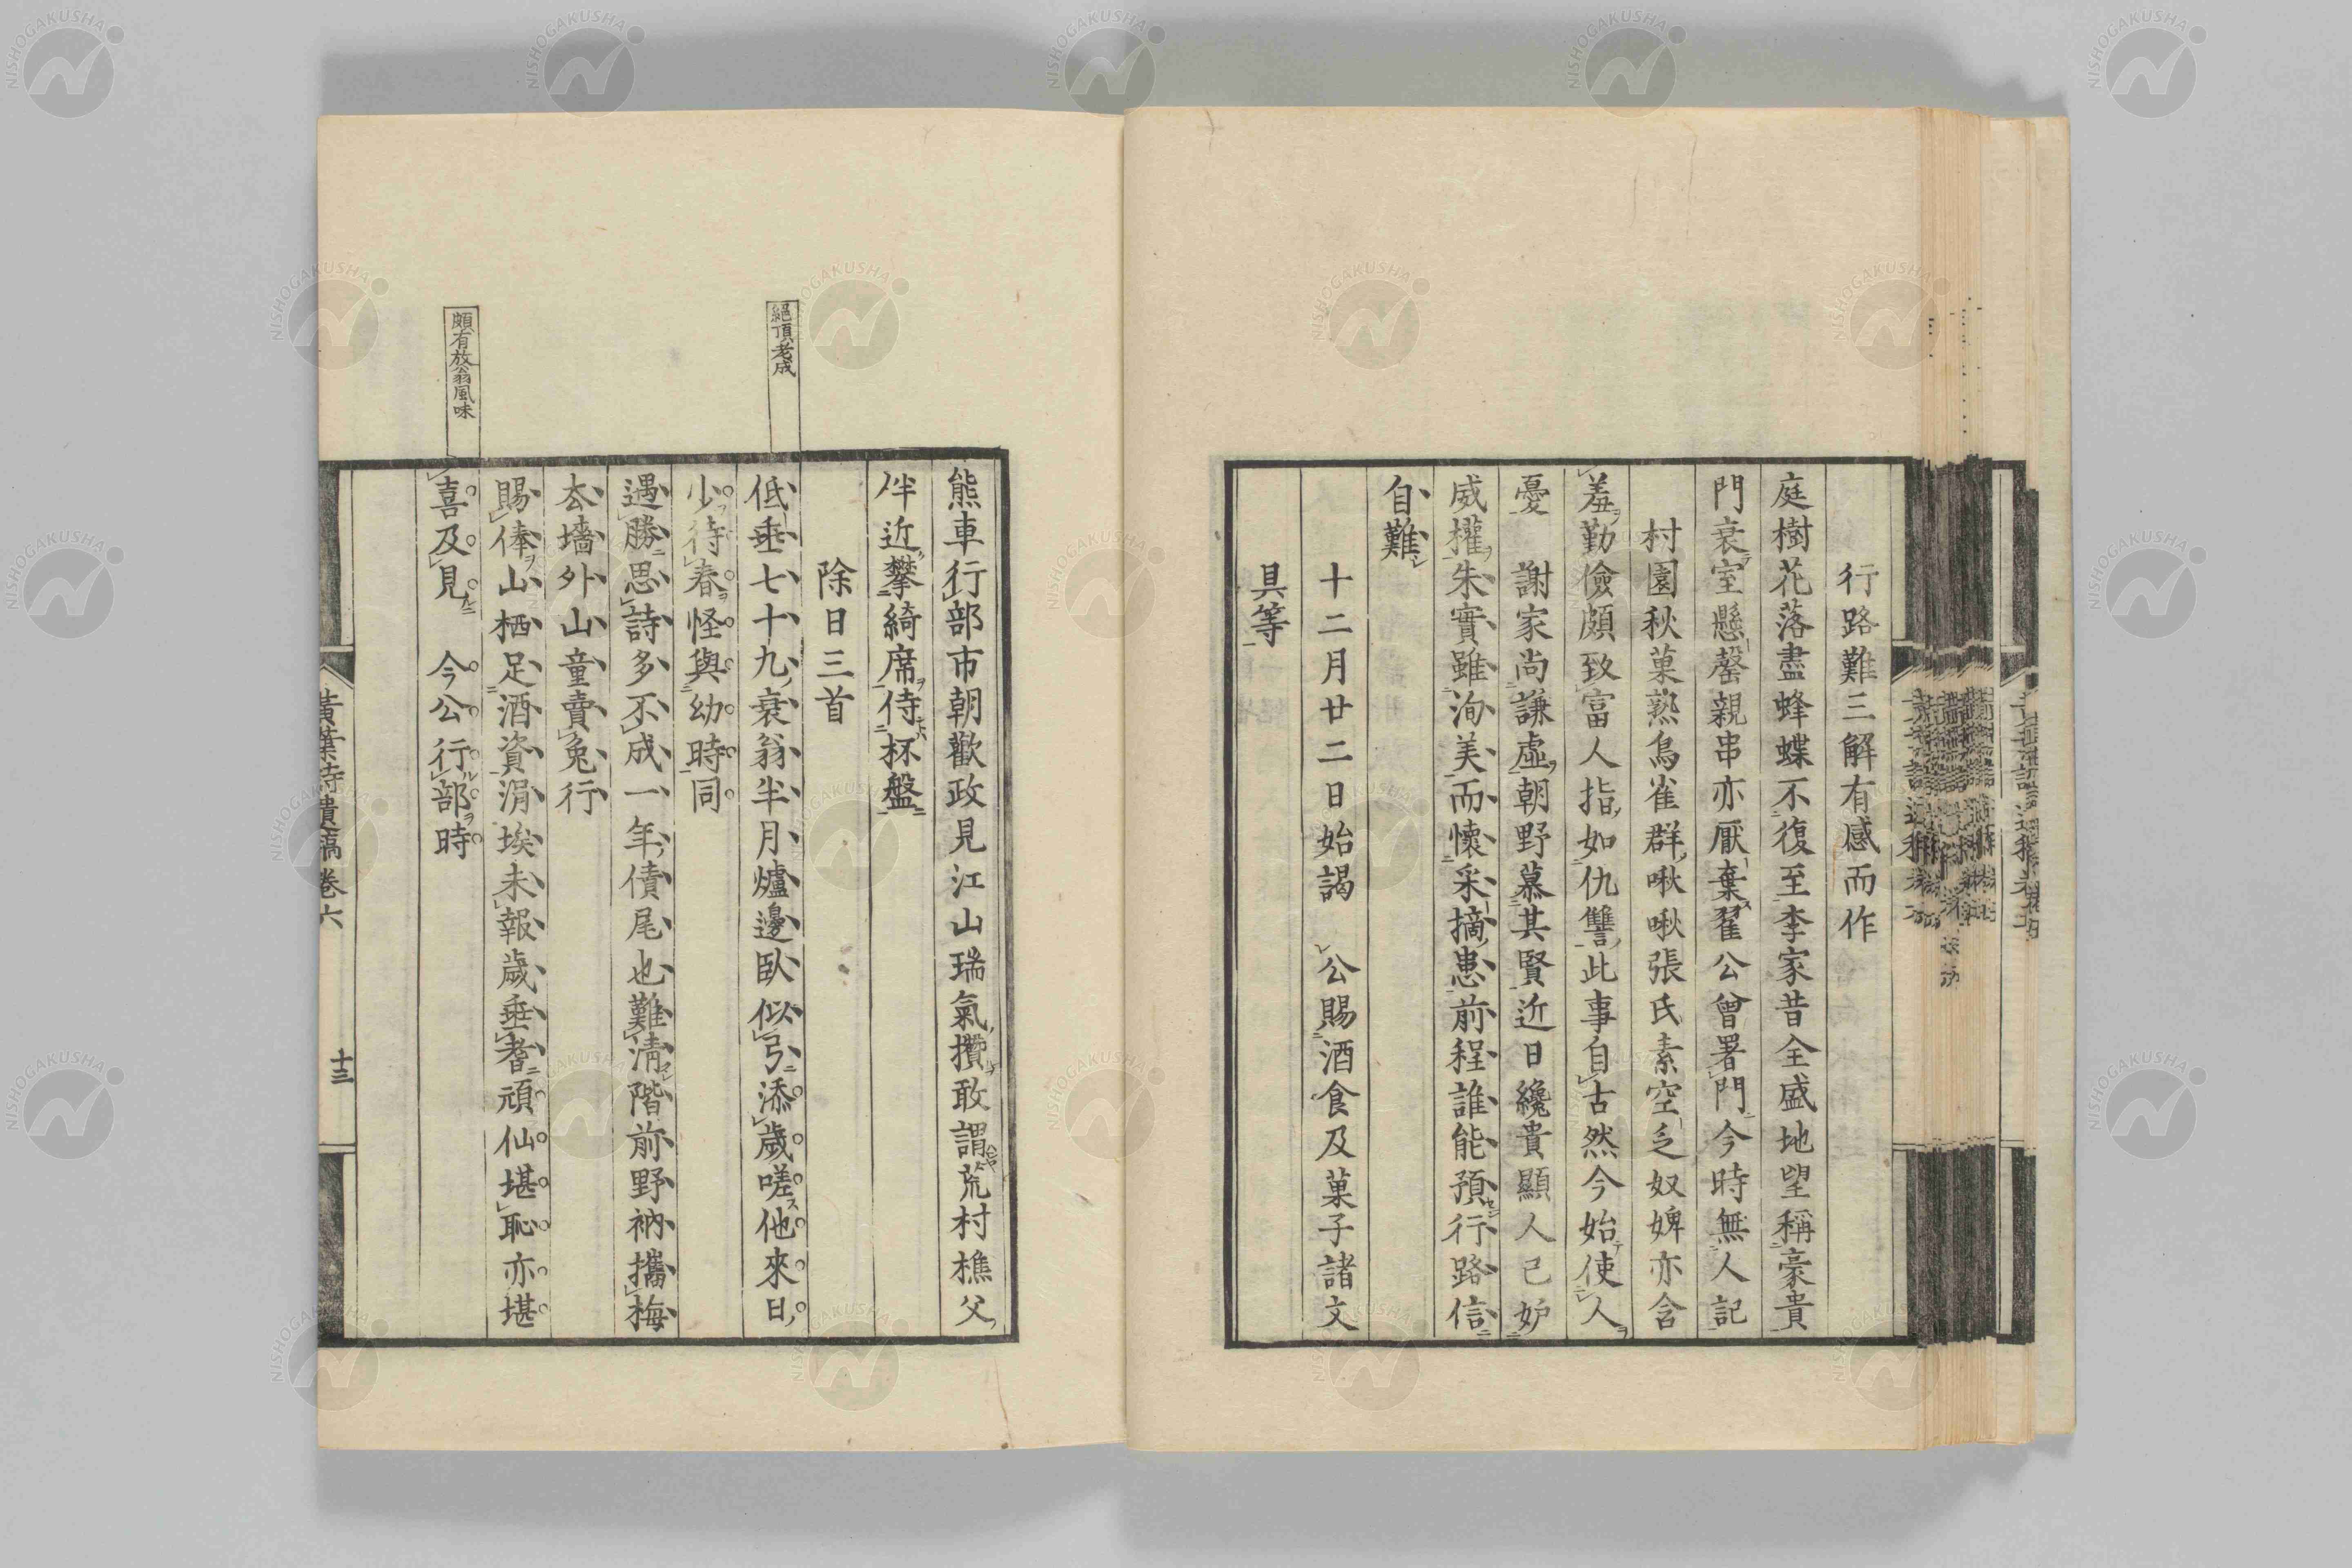 行路難三解有感而作
庭樹花落盡蜂蝶不復至李家昔全盛地望稱豪貴
門衰室懸罄親串亦厭棄翟公曾署門今時無人記
村園秋菓熟鳥雀群啾啾張氏素空乏奴婢亦含
羞勤儉頗致富人指如仇讐此事自古然今始使人
憂　謝家尚謙虛朝野慕其賢近日纔貴顯人已妒
威權朱實雖洵美而懷采摘患前程誰能預行路信
自難
十二月廿二日始謁　公賜酒食及菓子諸文
具等
熊車行部市朝歡政見江山瑞氣攢敢謂荒村樵父
伴近攀綺席侍杯盤
除日三首
絕頂老成
低垂七十九衰翁半月爐邊臥似弓添歲嗟他來日
少待春怪與幼時同
遇勝思詩多不成一年債尾也難清階前野衲攜梅
去墻外山童賣兔行
賜俸山栖足酒資涓埃未報歲垂耆頑仙堪恥亦堪
頗有放翁風味
喜及見　今公行部時
黃葉詩遺稿卷六
十三
NISHOGAKUSHA